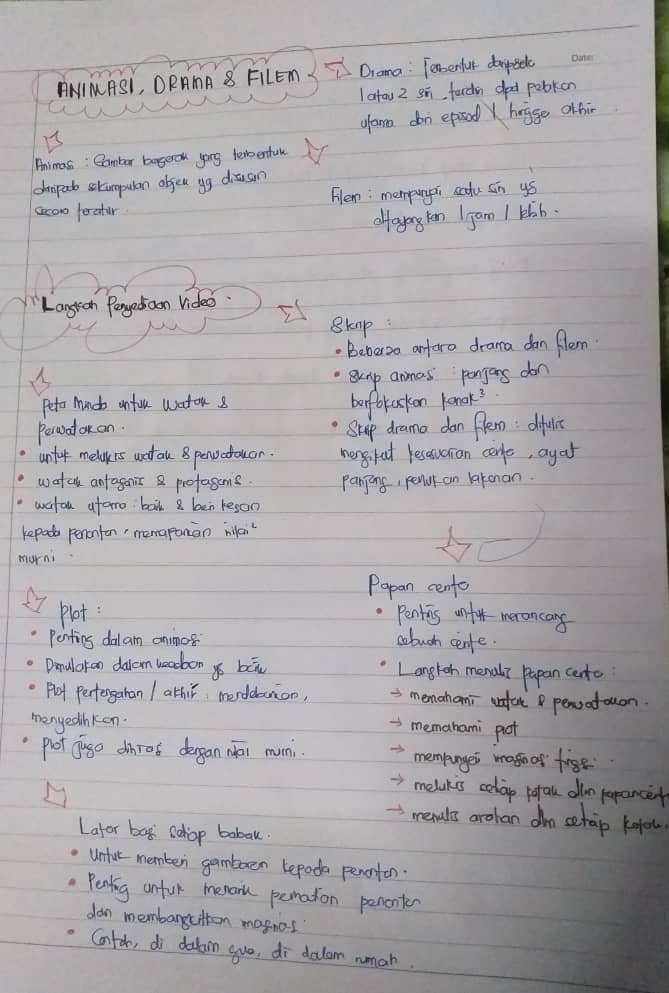 ANIMASI, DRAMA & FILEM
Date:
Drama : Terbentuk daripada
1 atau 2 siri, terdiri dpd
utama dari episod 1 hingga akhir.
Animasi : Gambar bergerak yang terbentuk
daripada sekumpulan objek yg disusun
secara teratur.
Filem : mempunyai satu siri yg
ditayangkan 1 jam / lebih.
Langkah Penyediaan Video.
Peta Minda untuk Watak &
Perwatakan.
• untuk melukis watak & perwatakan.
• watak antagonis & protagonis.
• watak utama : baik & beri kesan
kepada penonton, memaparkan nilai²
murni.
Skrip :
• Berbeza antara drama dan filem.
• Skrip animasi : panjang dan
berfokuskan kanak².
• Skrip drama dan filem : ditulis
mengikut kesesuaian cerita, ayat
panjang, lakonan.
Plot :
• Penting dalam animasi
• Dimulakan dalam keadaan yg baik
• Plot pertengahan / akhir : mendebarkan,
menyedihkan.
• Plot juga dihias dengan nilai murni.
Papan cerita
• Penting untuk merancang
sebuah cerita.
• Langkah menulis papan cerita :
→ memahami watak & perwatakan.
→ memahami plot
→ mempunyai imaginasi tinggi.
→ melukis setiap kotak dlm papancerita
→ menulis arahan dlm setiap kotak.
Latar bagi setiap babak.
• Untuk memberi gambaran kepada penonton.
• Penting untuk menarik perhatian penonton
dan membangkitkan imaginasi.
• Contoh, di dalam gua, di dalam rumah.